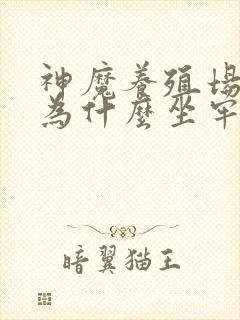 神魔養殖場
為什麼坐牢
暗翼猫王